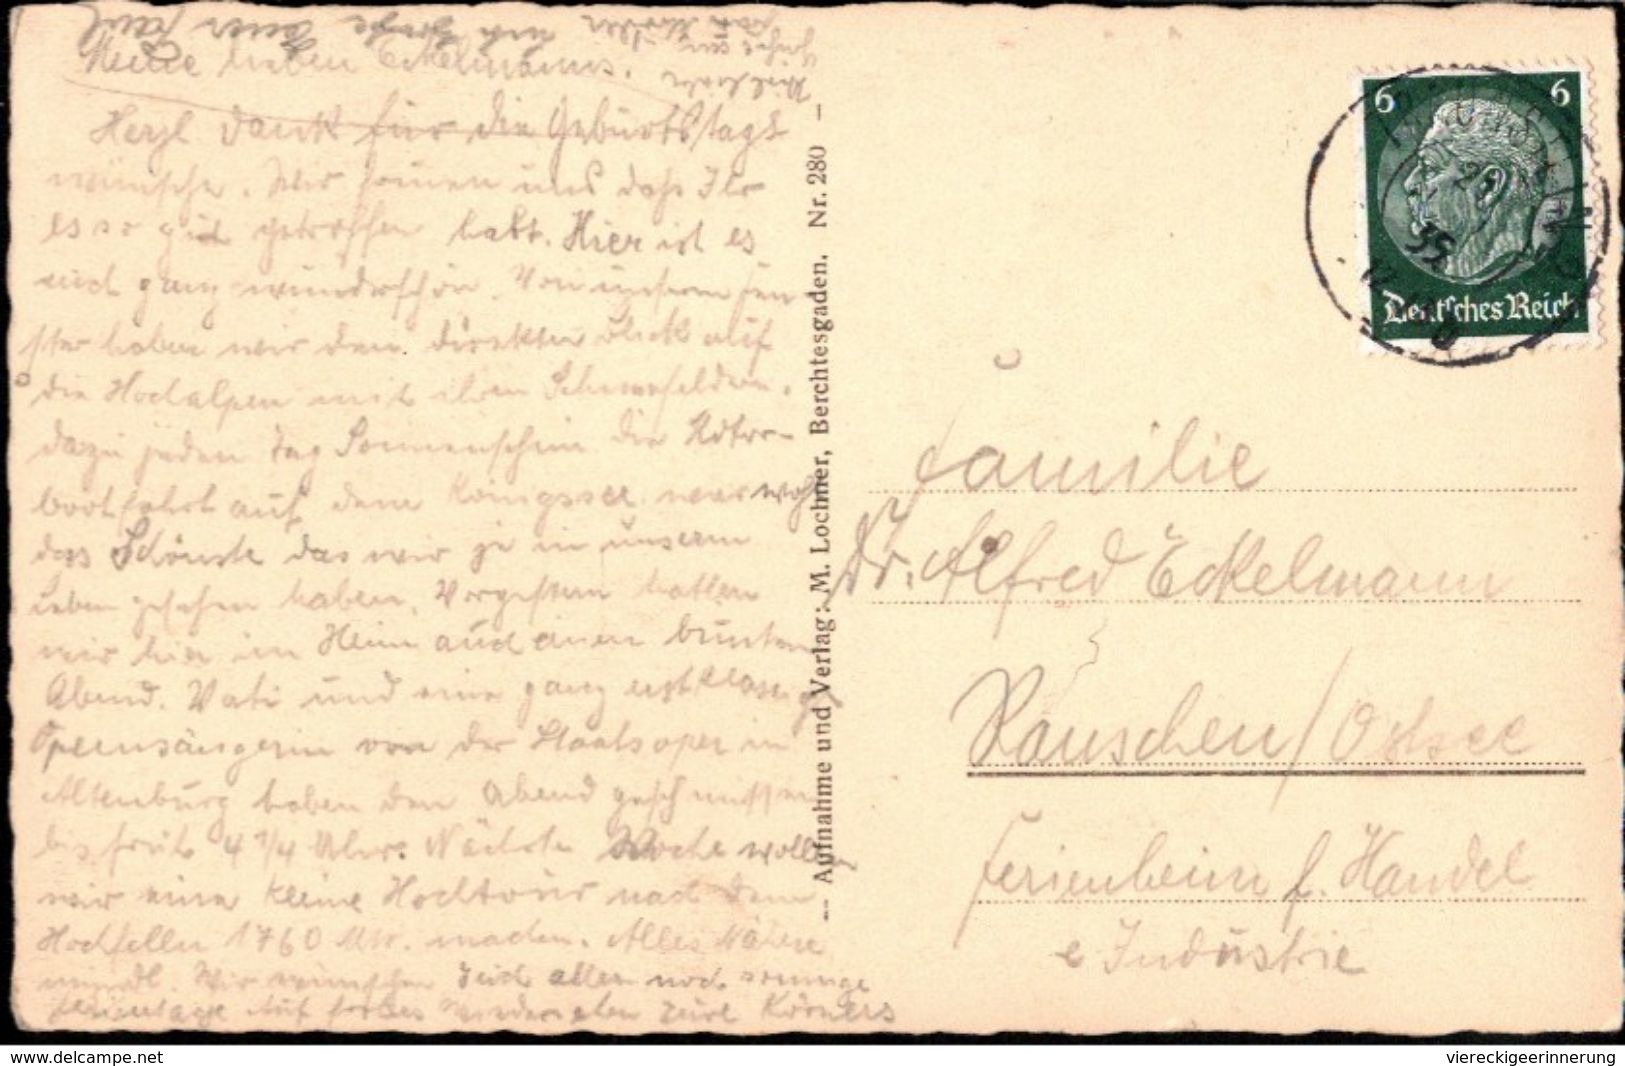 Meine lieben Eckelmanns.
Herzl Dank für die Geburtstags
wünsche. Wir freuen uns dass Ihr
es so gut getroffen habt. Hier ist es
auch ganz wunderschön. Von unserem Fen
ster haben wir den direkten Blick auf
die Hochalpen mit ihren Schneefeldern.
dazu jeden Tag Sonnenschein die Motor-
bootfahrt auf dem Königssee war wohl
das Schönste das wir je in unserm
Leben gesehen haben. Vorgestern hatten
wir hier im Heim auch einen bunten
Abend. Vati und eine ganz erstklassige
Opernsängerin von der Staatsoper in
Altenburg haben den Abend geschmissen
bis früh 4 1/4 Uhr. Nächste Woche wollen
wir eine kleine Hochtour nach dem
Hochfelln 1760 Mtr. machen. Alles Nähere
mündl. Wir wünschen Euch allen noch sonnige
Ferientage Auf frohes Wiedersehen Eure Körners
-- Aufnahme und Verlag: M. Lochner, Berchtesgaden. Nr. 280 --
6 6
35
Deutsches Reich
Familie
Dr. Alfred Eckelmann
Rauschen/Ostsee
Ferienheim f. Handel
e Industrie
www.delcampe.net
viereckigeerinnerung